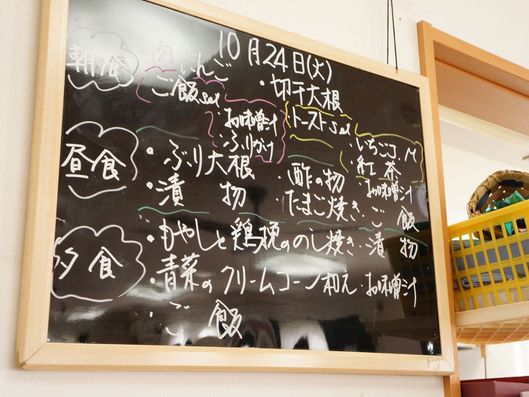 10月24日(火)
朝食
だんご
・切干大根
ご飯set
お味噌汁
・ふりかけ
・トーストset
・いちごコ.M
・紅茶
昼食
・ぶり大根
・酢の物
お味噌汁
・漬物
・たまご焼き・ご飯
夕食
・もやしと鶏挽ののし焼き・漬物
・青菜のクリームコーン和え・お味噌汁
・ご飯